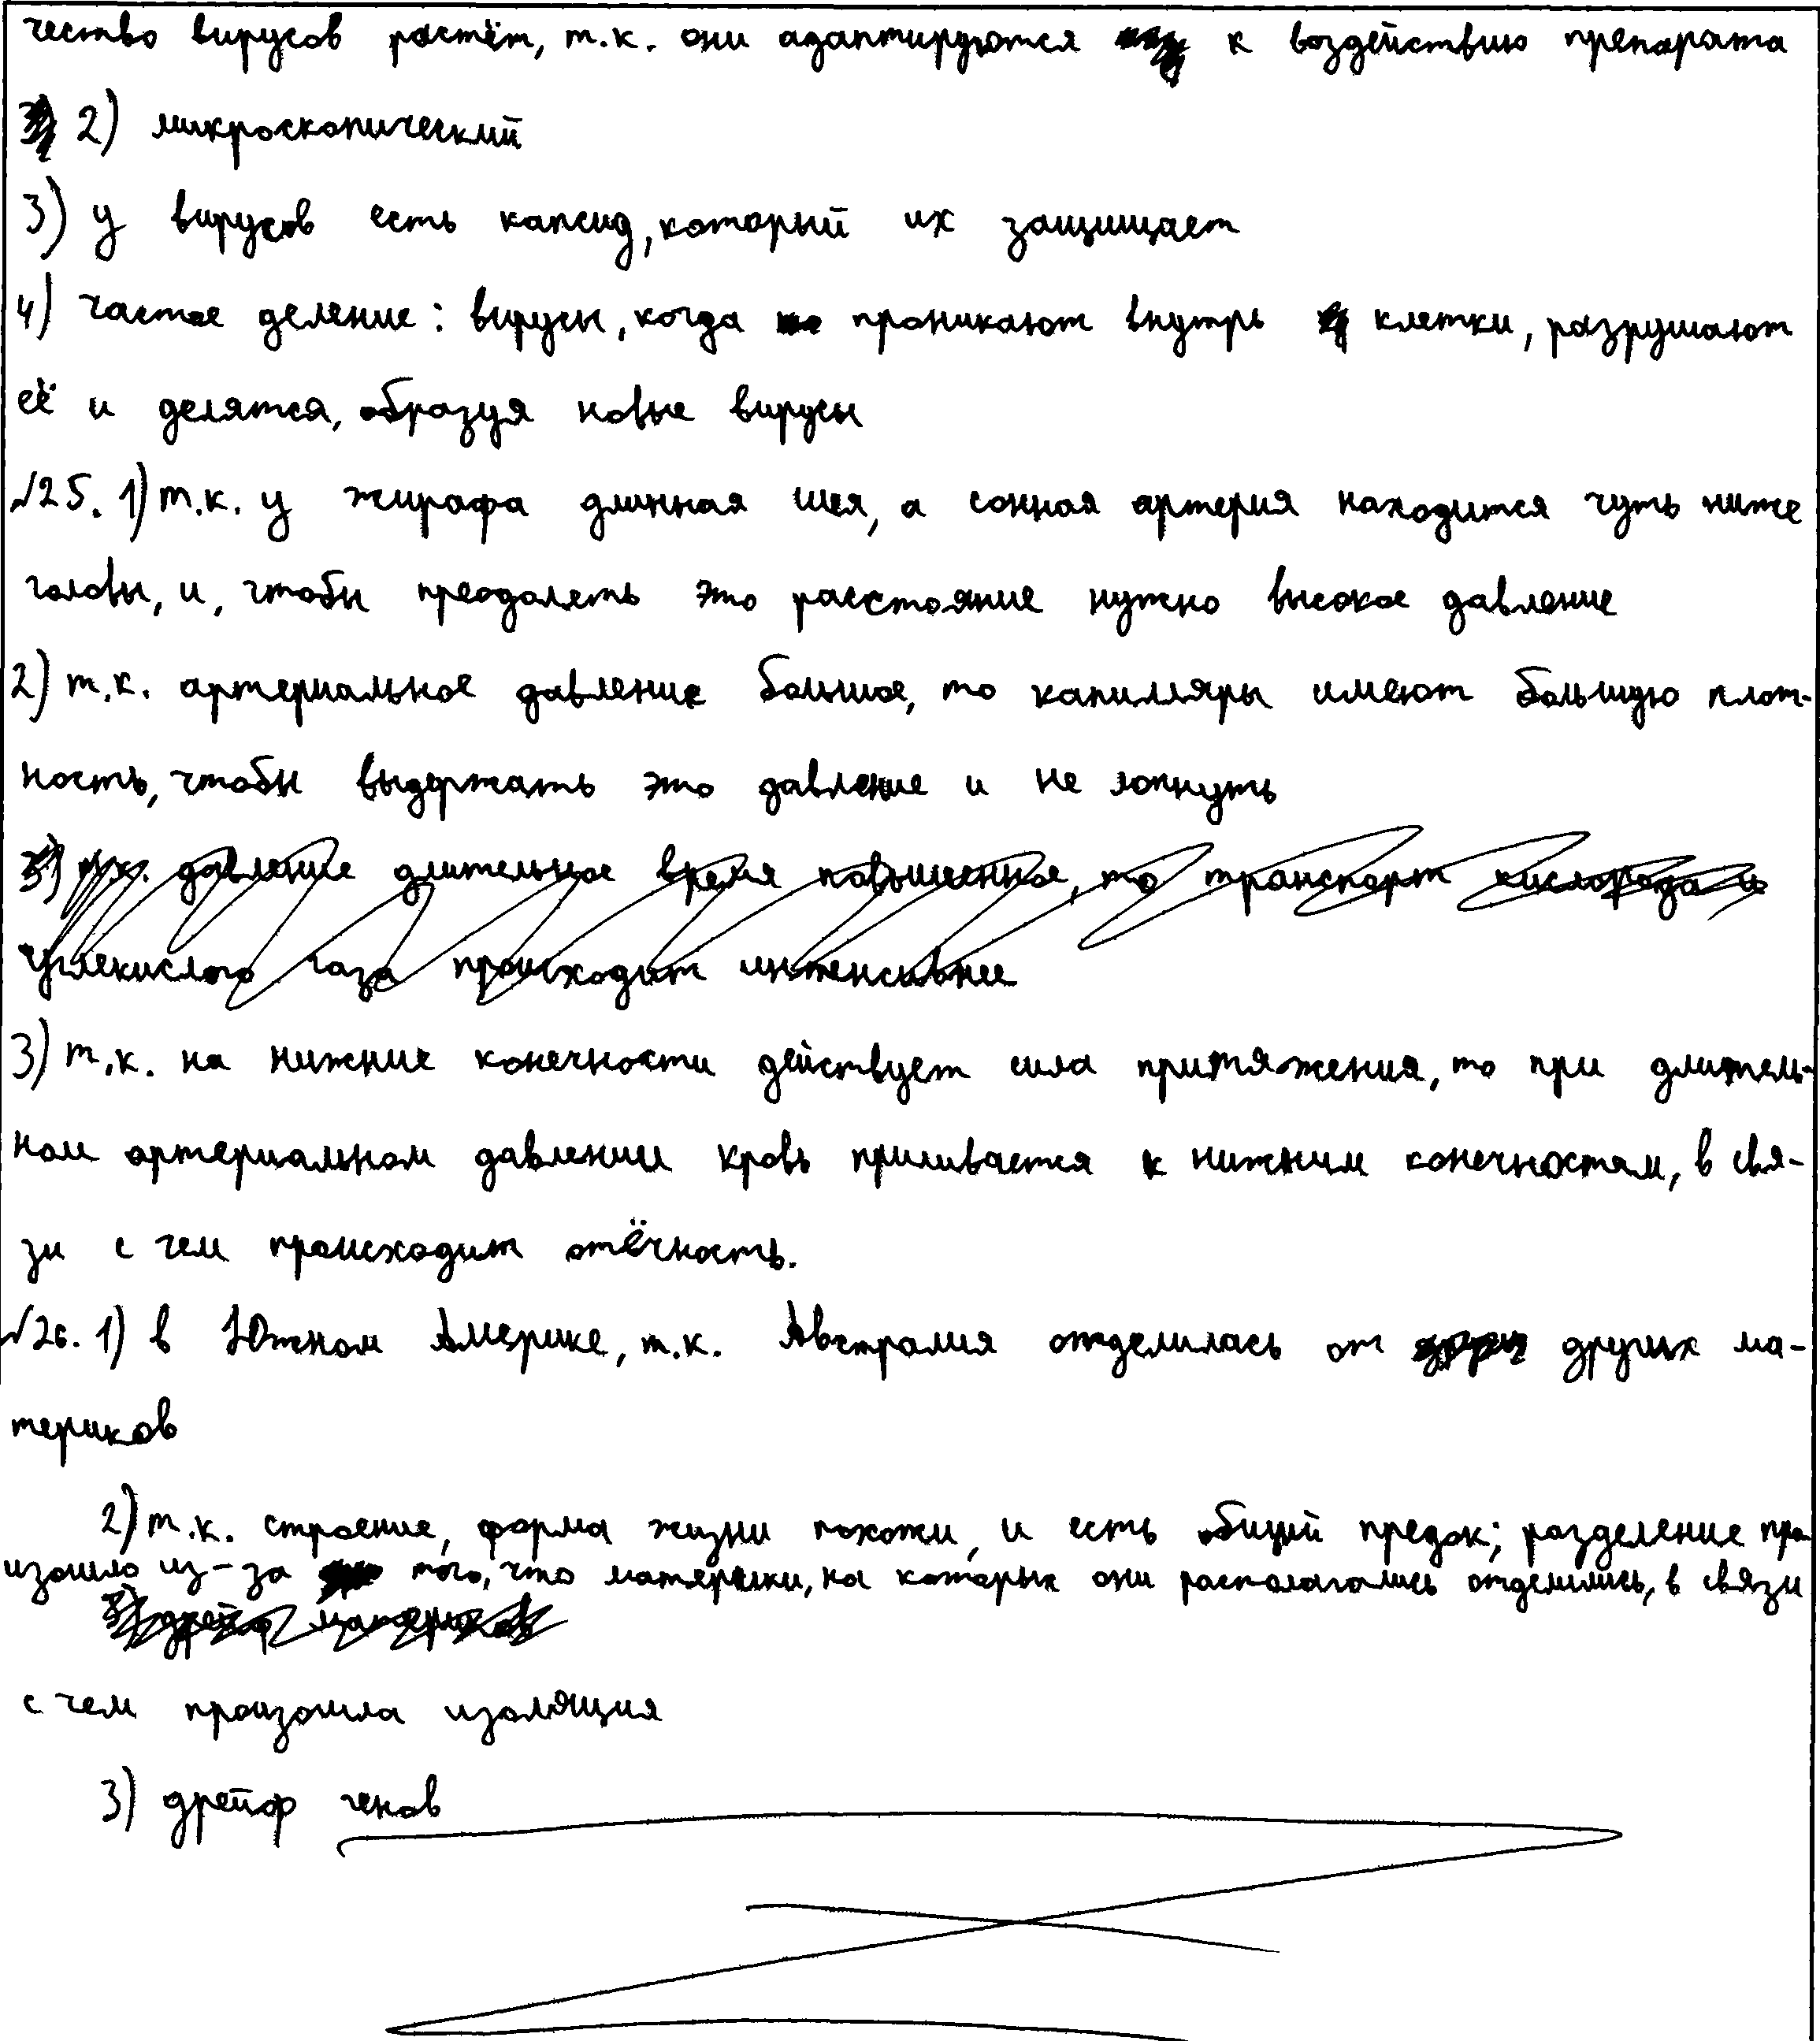 чество вирусов растёт, т.к. они адаптируются к воздействию препарата
2) микроскопический
3) у вирусов есть капсид, который их защищает
4) частое деление: вирусы, когда проникают внутрь клетки, разрушают
её и делятся, образуя новые вирусы
№25. 1) т.к. у жирафа длинная шея, а сонная артерия находится чуть ниже
головы, и, чтобы преодолеть это расстояние нужно высокое давление
2) т.к. артериальное давление большое, то капилляры имеют большую плот-
ность, чтобы выдержать это давление и не лопнуть
3) т.к. давление длительное время повышенное, то транспорт кислорода и
углекислого газа происходит интенсивнее
3) т.к. на нижние конечности действует сила притяжения, то при длитель-
ном артериальном давлении кровь приливается к нижним конечностям, в свя-
зи с чем происходит отёчность.
№26. 1) в Южной Америке, т.к. Австралия отделилась от других ма-
териков
2) т.к. строение, форма жизни похожи, и есть общий предок; разделение про
изошло из-за того, что материки, на которых они располагались отделились, в связи
3) дрейф материков
с чем произошла изоляция
3) дрейф генов